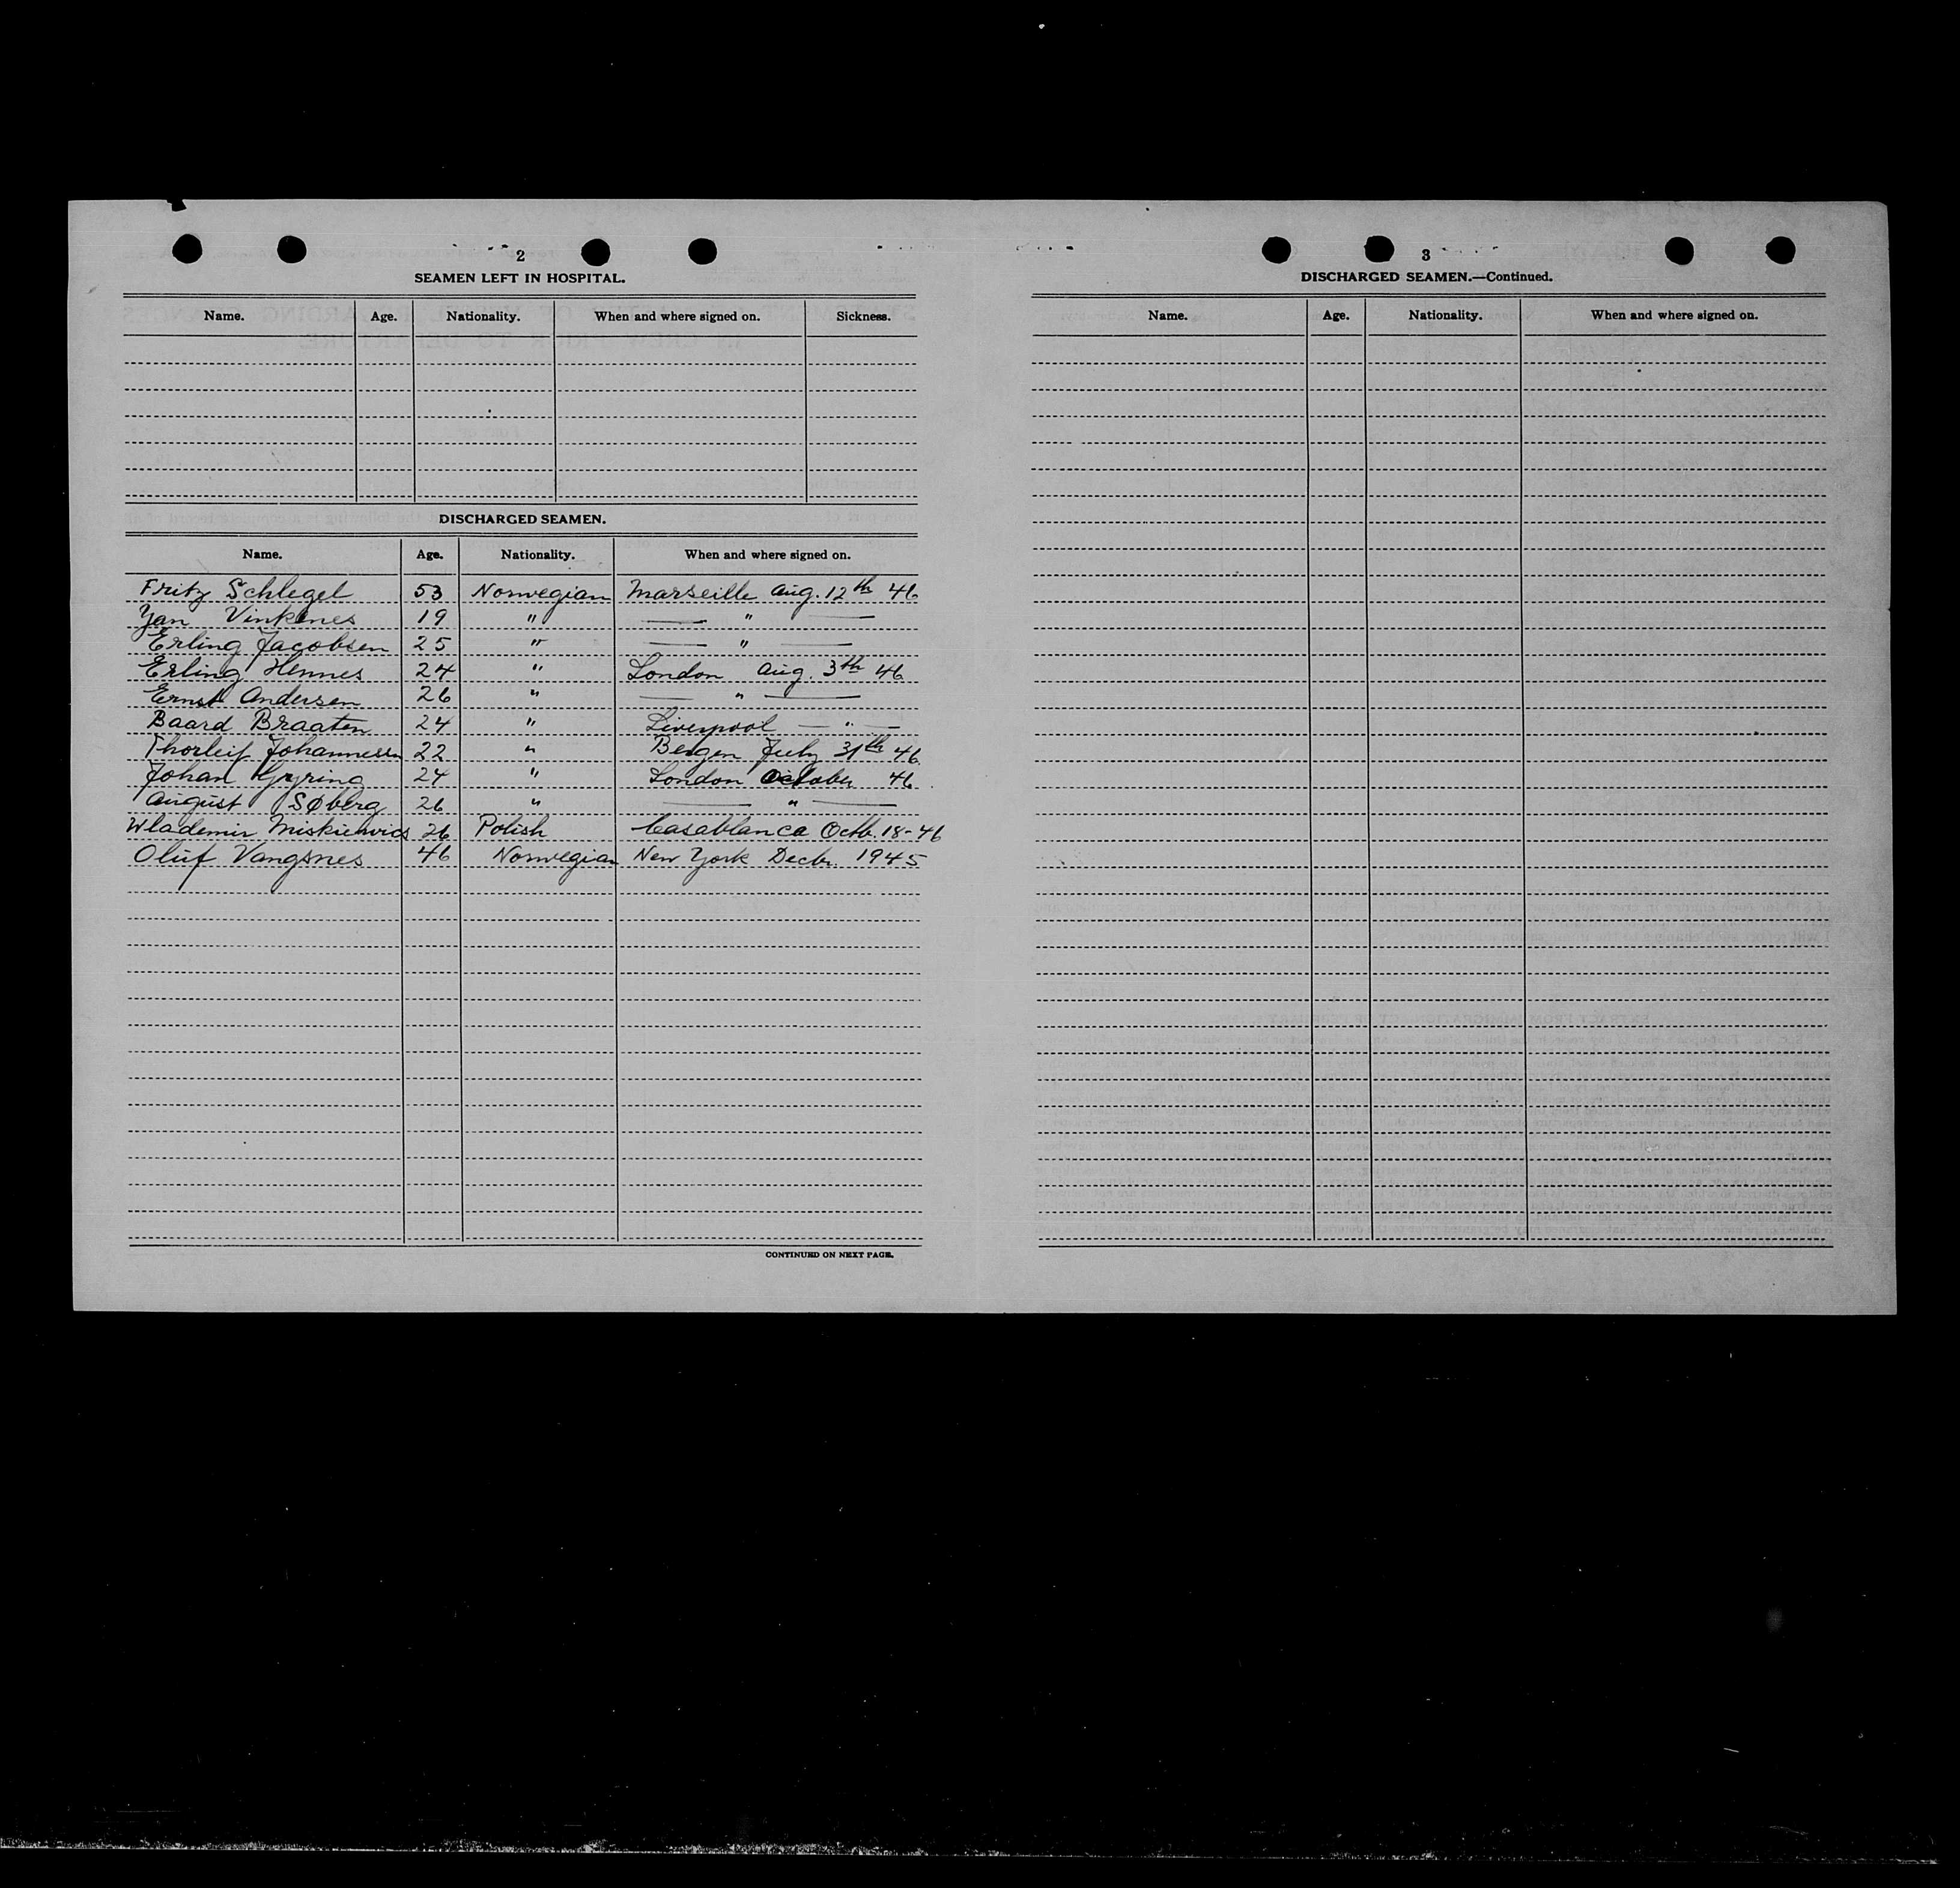 2
SEAMEN LEFT IN HOSPITAL.
Name. Age. Nationality. When and where signed on. Sickness.
DISCHARGED SEAMEN.
Name. Age. Nationality. When and where signed on.
Fritz Schlegel 53 Norwegian Marseille Aug. 12th 46
Jan Vinkenes 19 " — " —
Erling Jacobsen 25 " — " —
Erling Hennes 24 " London Aug. 3th 46
Ernst Andersen 26 " — " —
Baard Braaten 24 " Liverpool — " —
Thorleif Johannessen 22 " Bergen July 31th 46
Johan Gyring 24 " London October 46
August Søberg 26 " — " —
Wlademir Miskiewics 26 Polish Casablanca Octb. 18-46
Oluf Vangsnes 46 Norwegian New York Decbr. 1945
CONTINUED ON NEXT PAGE.
3
DISCHARGED SEAMEN.—Continued.
Name. Age. Nationality. When and where signed on.